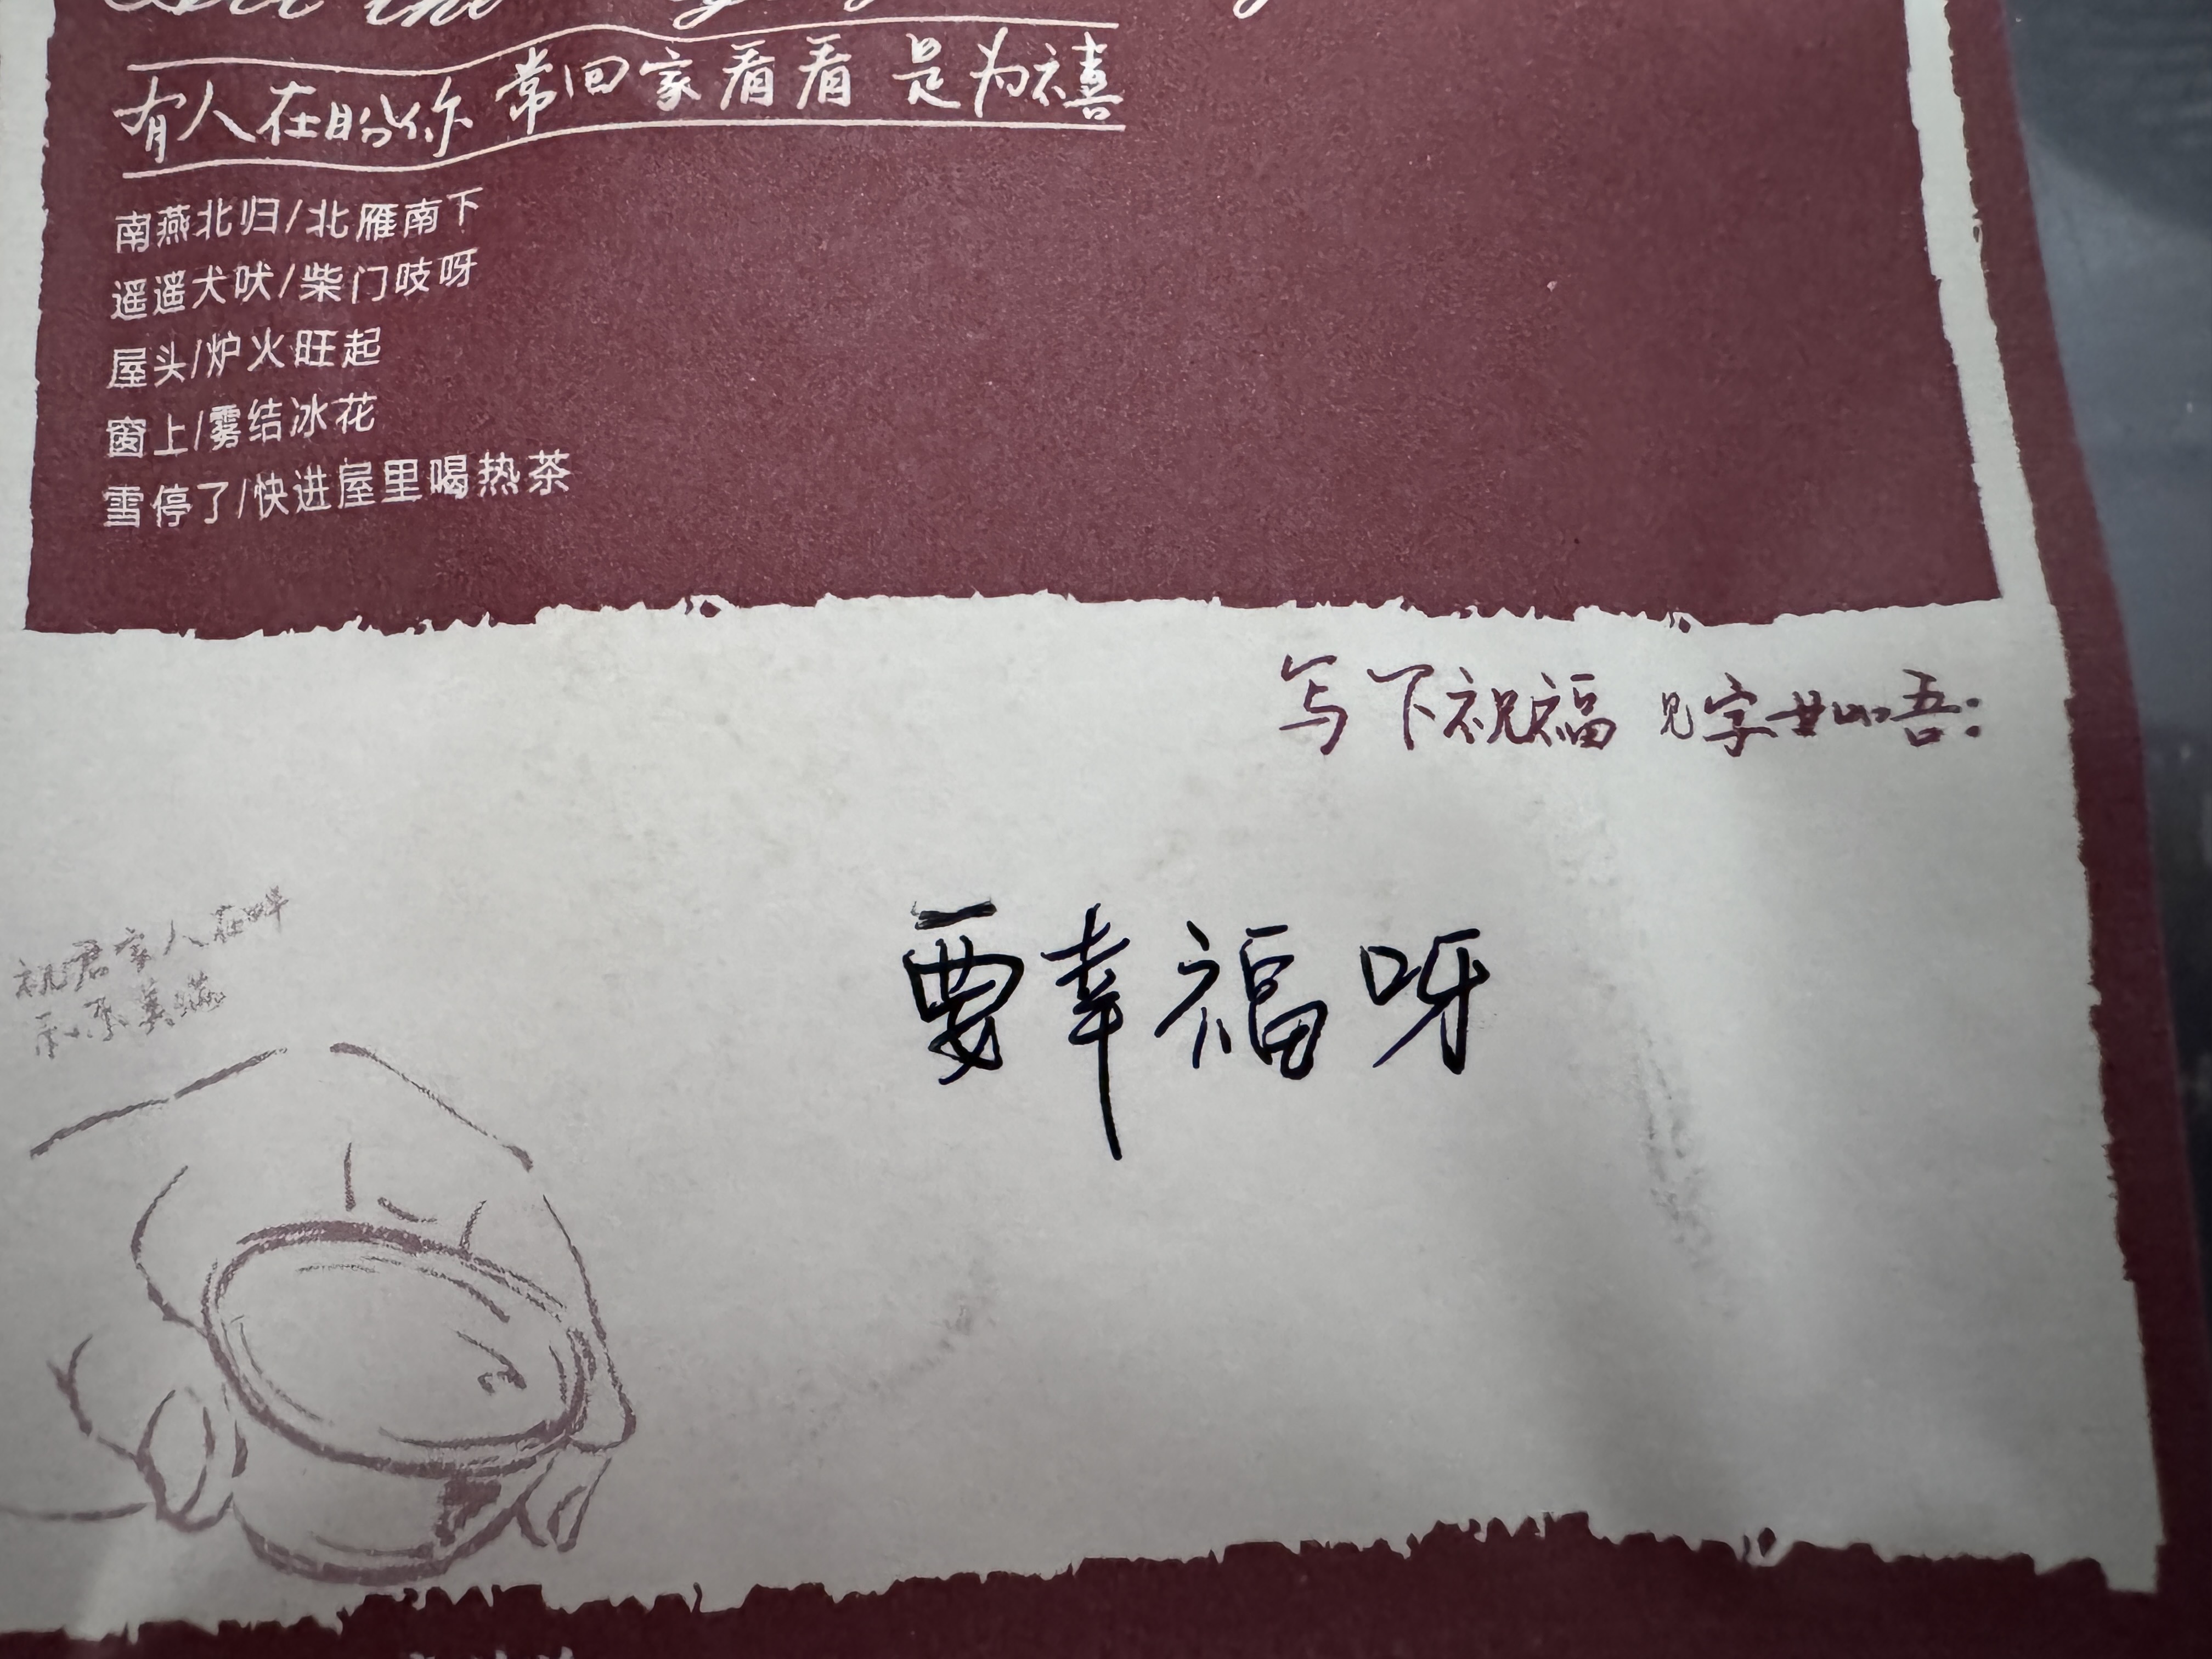 有人在盼你 常回家看看 是为禧
南燕北归/北雁南下
遥遥犬吠/柴门吱呀
屋头/炉火旺起
窗上/雾结冰花
雪停了/快进屋里喝热茶
写下祝福 见字如吾:
要幸福呀
祝君家人在畔
和乐美满